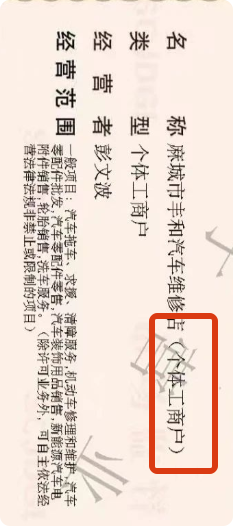 名称 麻城市丰和汽车维修店（个体工商户）
类型 个体工商户
经营者 彭文波
经营范围 一般项目：汽车拖车、求援、清障服务，机动车修理和维护，汽车
零配件批发，汽车零配件零售，汽车装饰用品销售，新能源汽车电
附件销售，轮胎销售，洗车服务。（除许可业务外，可自主依法经
营法律法规非禁止或限制的项目）
营
业